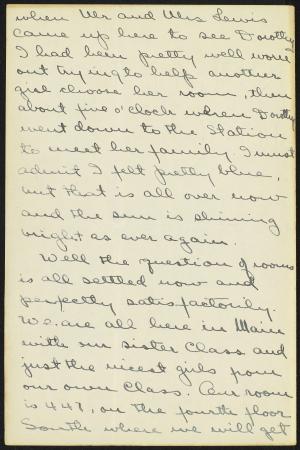 when Mr and Mrs Lewis
came up here to see Dorothy
I had been pretty well worn
out trying to help another
girl choose her room, then
about five o'clock when Dorothy
went down to the Station
to meet her family I must
admit I felt pretty blue,
but that is all over now
and the sun is shining
bright as ever again.
Well the question of rooms
is all settled now and
perfectly satisfactorily.
We are all here in Main
with our sister Class and
just the nicest girls from
our own Class. Our room
is 447, on the fourth floor
South where we will get